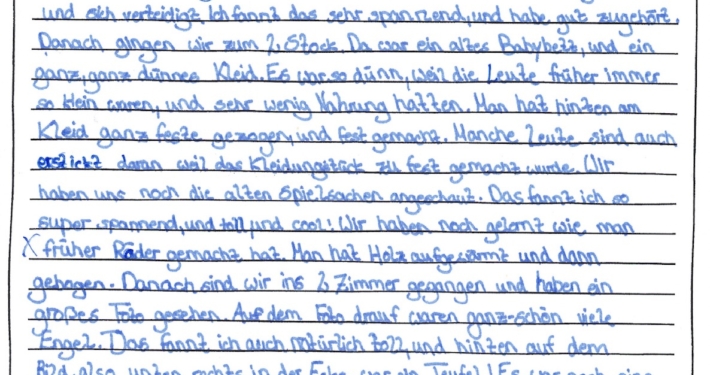 und sich verteidigt. Ich fannt das sehr spanrzend, und habe gut zugehört.
Danach gingen wir zum 2 Stock. Da war ein altes Babybett, und ein
ganz, ganz dünnes Kleid. Es war so dünn, weil die Leute früher immer
so klein waren, und sehr wenig Nahrung hatten. Man hat hinten am
Kleid ganz feste gezogen, und fest gemacht. Manche Leute sind auch
erstickt daran weil das Kleidungstück zu fest gemacht wurde. Wir
haben uns noch die alten Spielsachen angeschaut. Das fannt ich so
super, spannend, und toll, und cool! Wir haben noch gelernt wie man
X früher Räder gemacht hat. Man hat Holz aufgewärmt und dann
gebogen. Danach sind wir ins 2 Zimmer gegangen und haben ein
großes Foto gesehen. Auf dem Foto drauf waren ganz-schön viele
Engel. Das fannt ich auch natürlich toll, und hinten auf dem
Bild, also unten rechts in der Ecke war ein Teufel! Es war noch eine